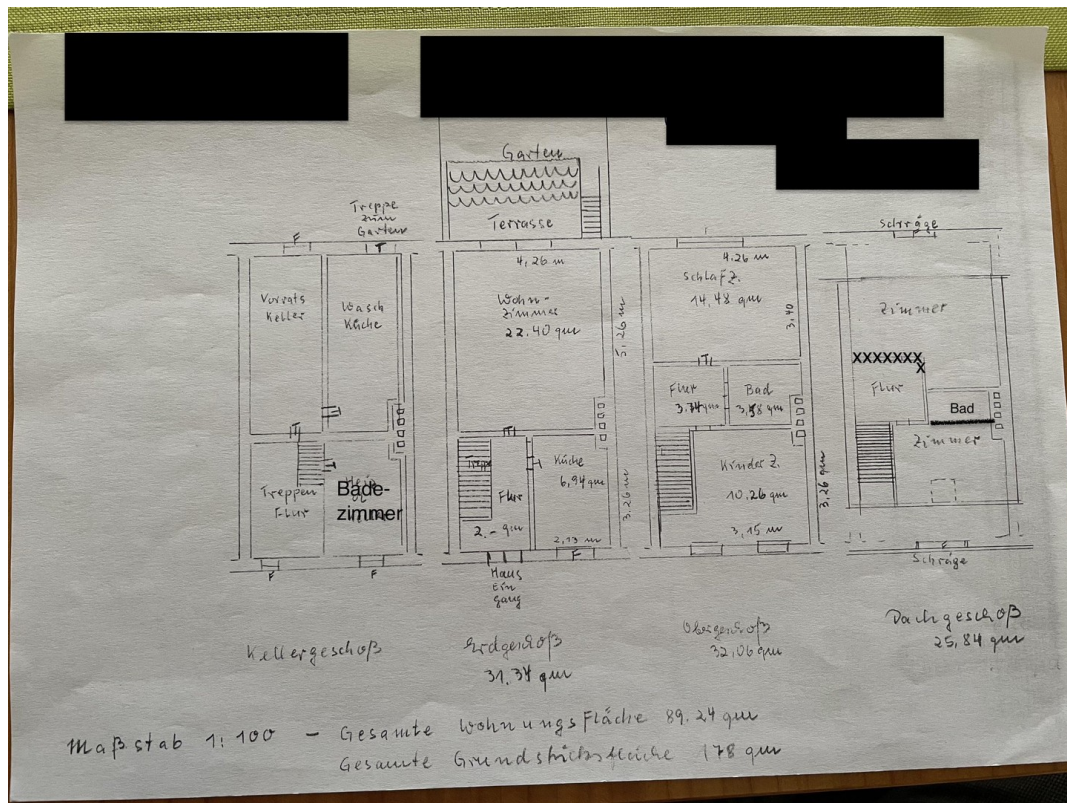 Garten
Terrasse
Treppe
zum
Garten
F
T
Vorrats
Keller
Wasch
Küche
T
Treppen
Flur
Bade-
zimmer
F
F
Kellergeschoß
4,26 m
Wohn-
zimmer
22.40 qm
5,26 m
T
Treppe
Flur
2.- qm
Küche
6,94 qm
3.26 m
2,13 m
F
Haus
Ein
gang
Erdgeschoß
31,34 qm
4.26 m
Schlaf Z.
14,48 qm
3,40
T
Flur
3.74 qm
Bad
3,58 qm
Kinder Z.
10,26 qm
3,15 m
3,26 qm
Obergeschoß
32,06 qm
Schräge
Zimmer
XXXXXXX
X
Flur
Bad
Zimmer
F
Schräge
Dachgeschoß
25,84 qm
Maßstab 1:100 - Gesamte Wohnungsfläche 89.24 qm
Gesamte Grundstücksfläche 178 qm